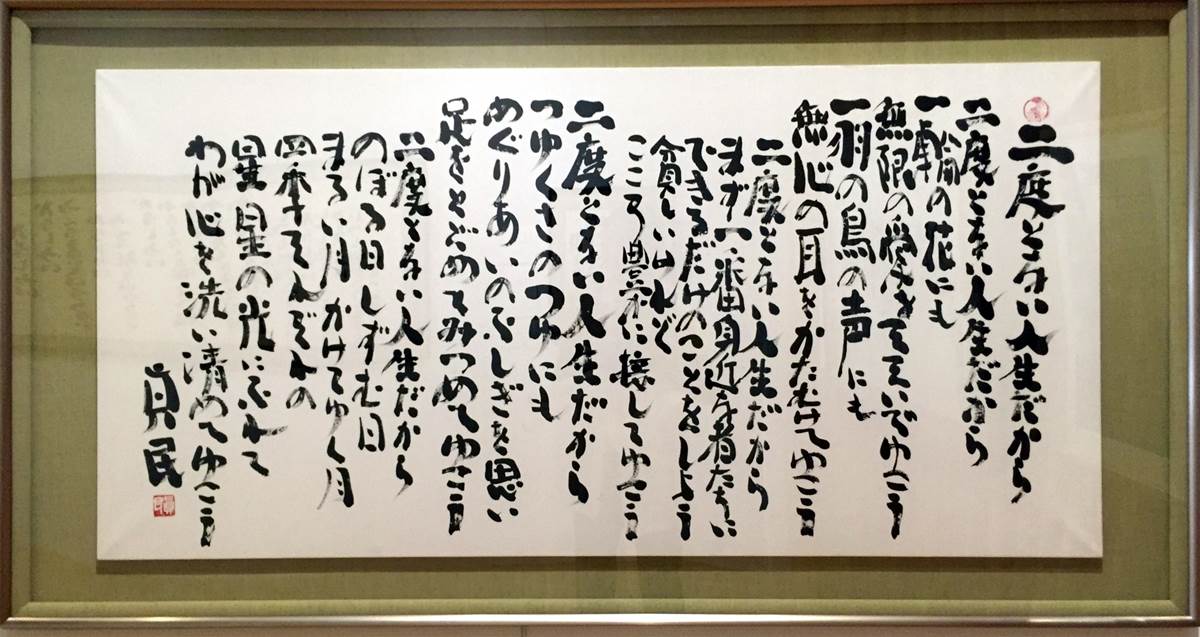 二度とない人生だから
二度とない人生だから
一輪の花にも
無限の愛をそそいでゆこう
一羽の鳥の声にも
無心の耳をかたむけてゆこう
二度とない人生だから
まず一番身近な者たちに
できるだけのことをしよう
貧しいけれど
こころ豊かに接してゆこう
二度とない人生だから
つゆくさのつゆにも
めぐりあいのふしぎを思い
足をとどめてみつめてゆこう
二度とない人生だから
のぼる日しずむ日
まるい月かけてゆく月
四季それぞれの
星星の光にふれて
わが心を洗い清めてゆこう
真民